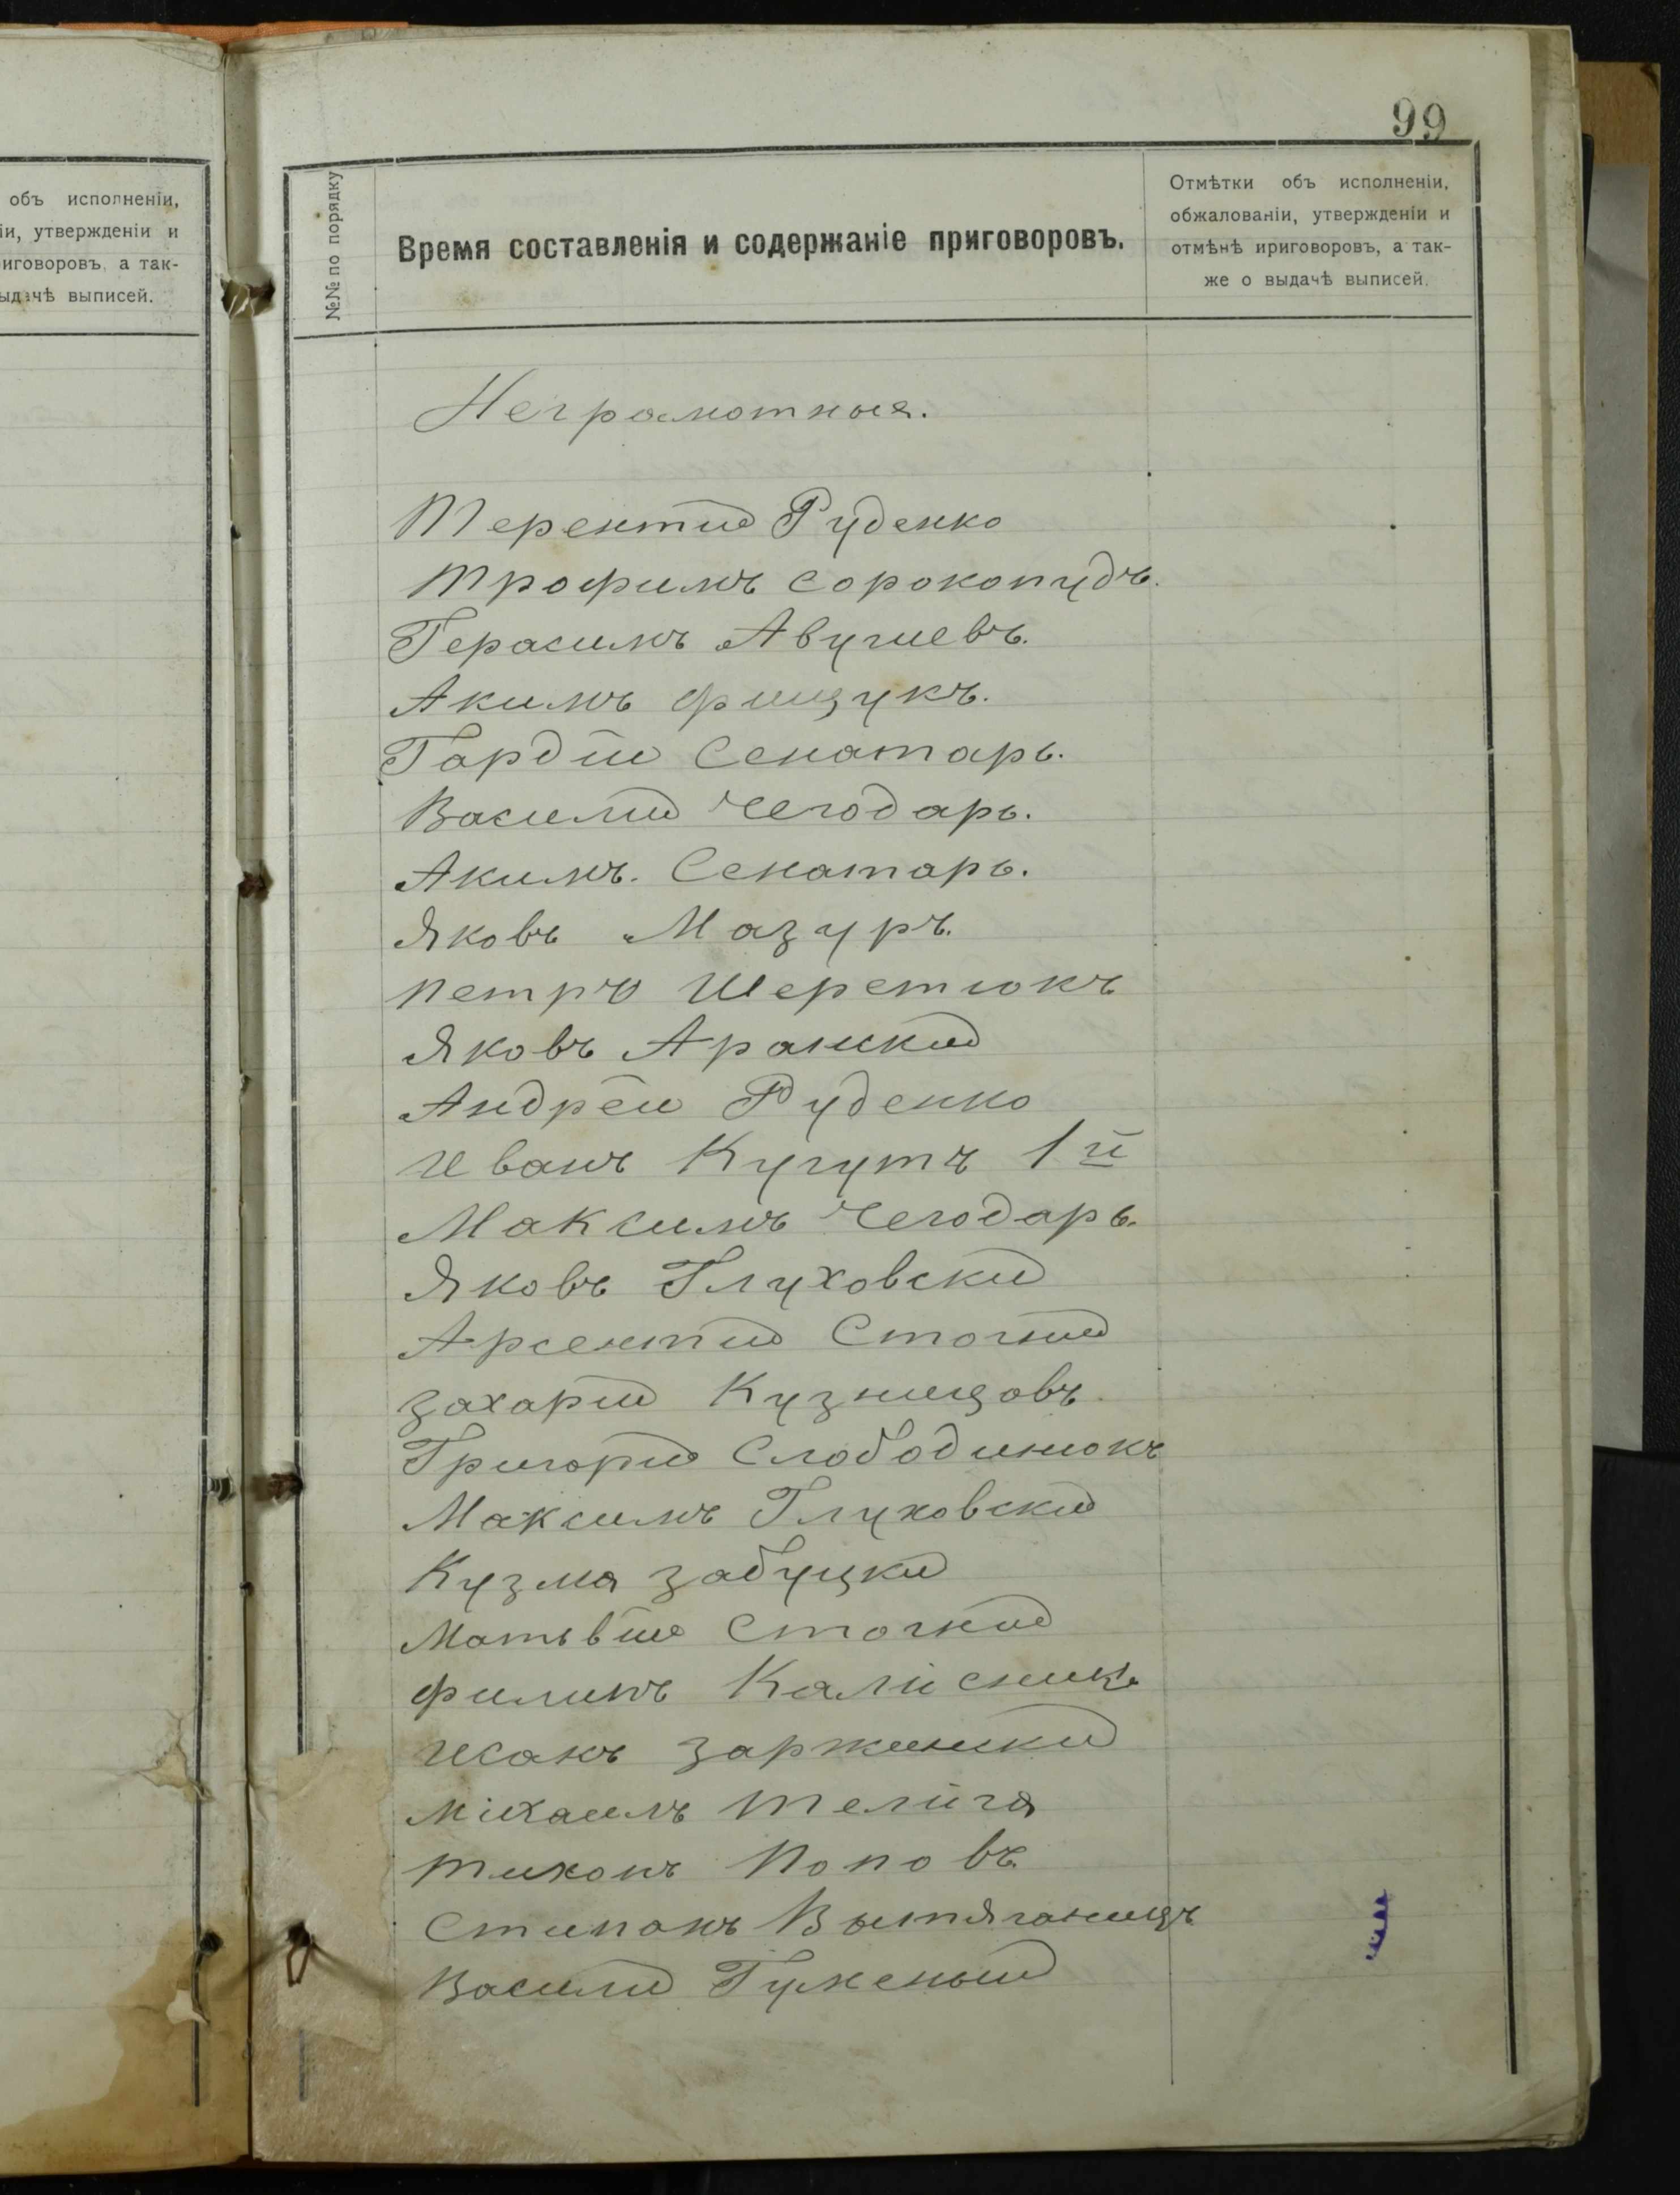 99
объ исполненіи,
іи, утвержденіи и
иговоровъ, а так-
ыдачѣ выписей.
№№ по порядку
Время составленія и содержаніе приговоровъ.
Отмѣтки объ исполненіи,
обжалованіи, утвержденіи и
отмѣнѣ ириговоровъ, а так-
же о выдачѣ выписей.
Неграмотныя.
Терентий Руденко
Трофимъ Сорокопудъ.
Герасимъ
Акимъ Фищукъ.
Гордій Сенатарь.
Василий Чегодарь.
Акимъ. Сенатарь.
Яковъ Мазуръ.
Петръ Шеретюкъ
Яковъ
Андрей Руденко
Иванъ Кугутъ 1й
Максимъ Чегодарь.
Яковъ Глуховский
Арсентий Стогний
Захарий Кузнецовъ.
Григорий Слободинюкъ
Максимъ Глуховский
Кузма Забуцкий
Матьвій Стогний
Филипъ
Исакъ
Міхаилъ Теліга
Тихонъ Поповъ
Стипанъ
Василий